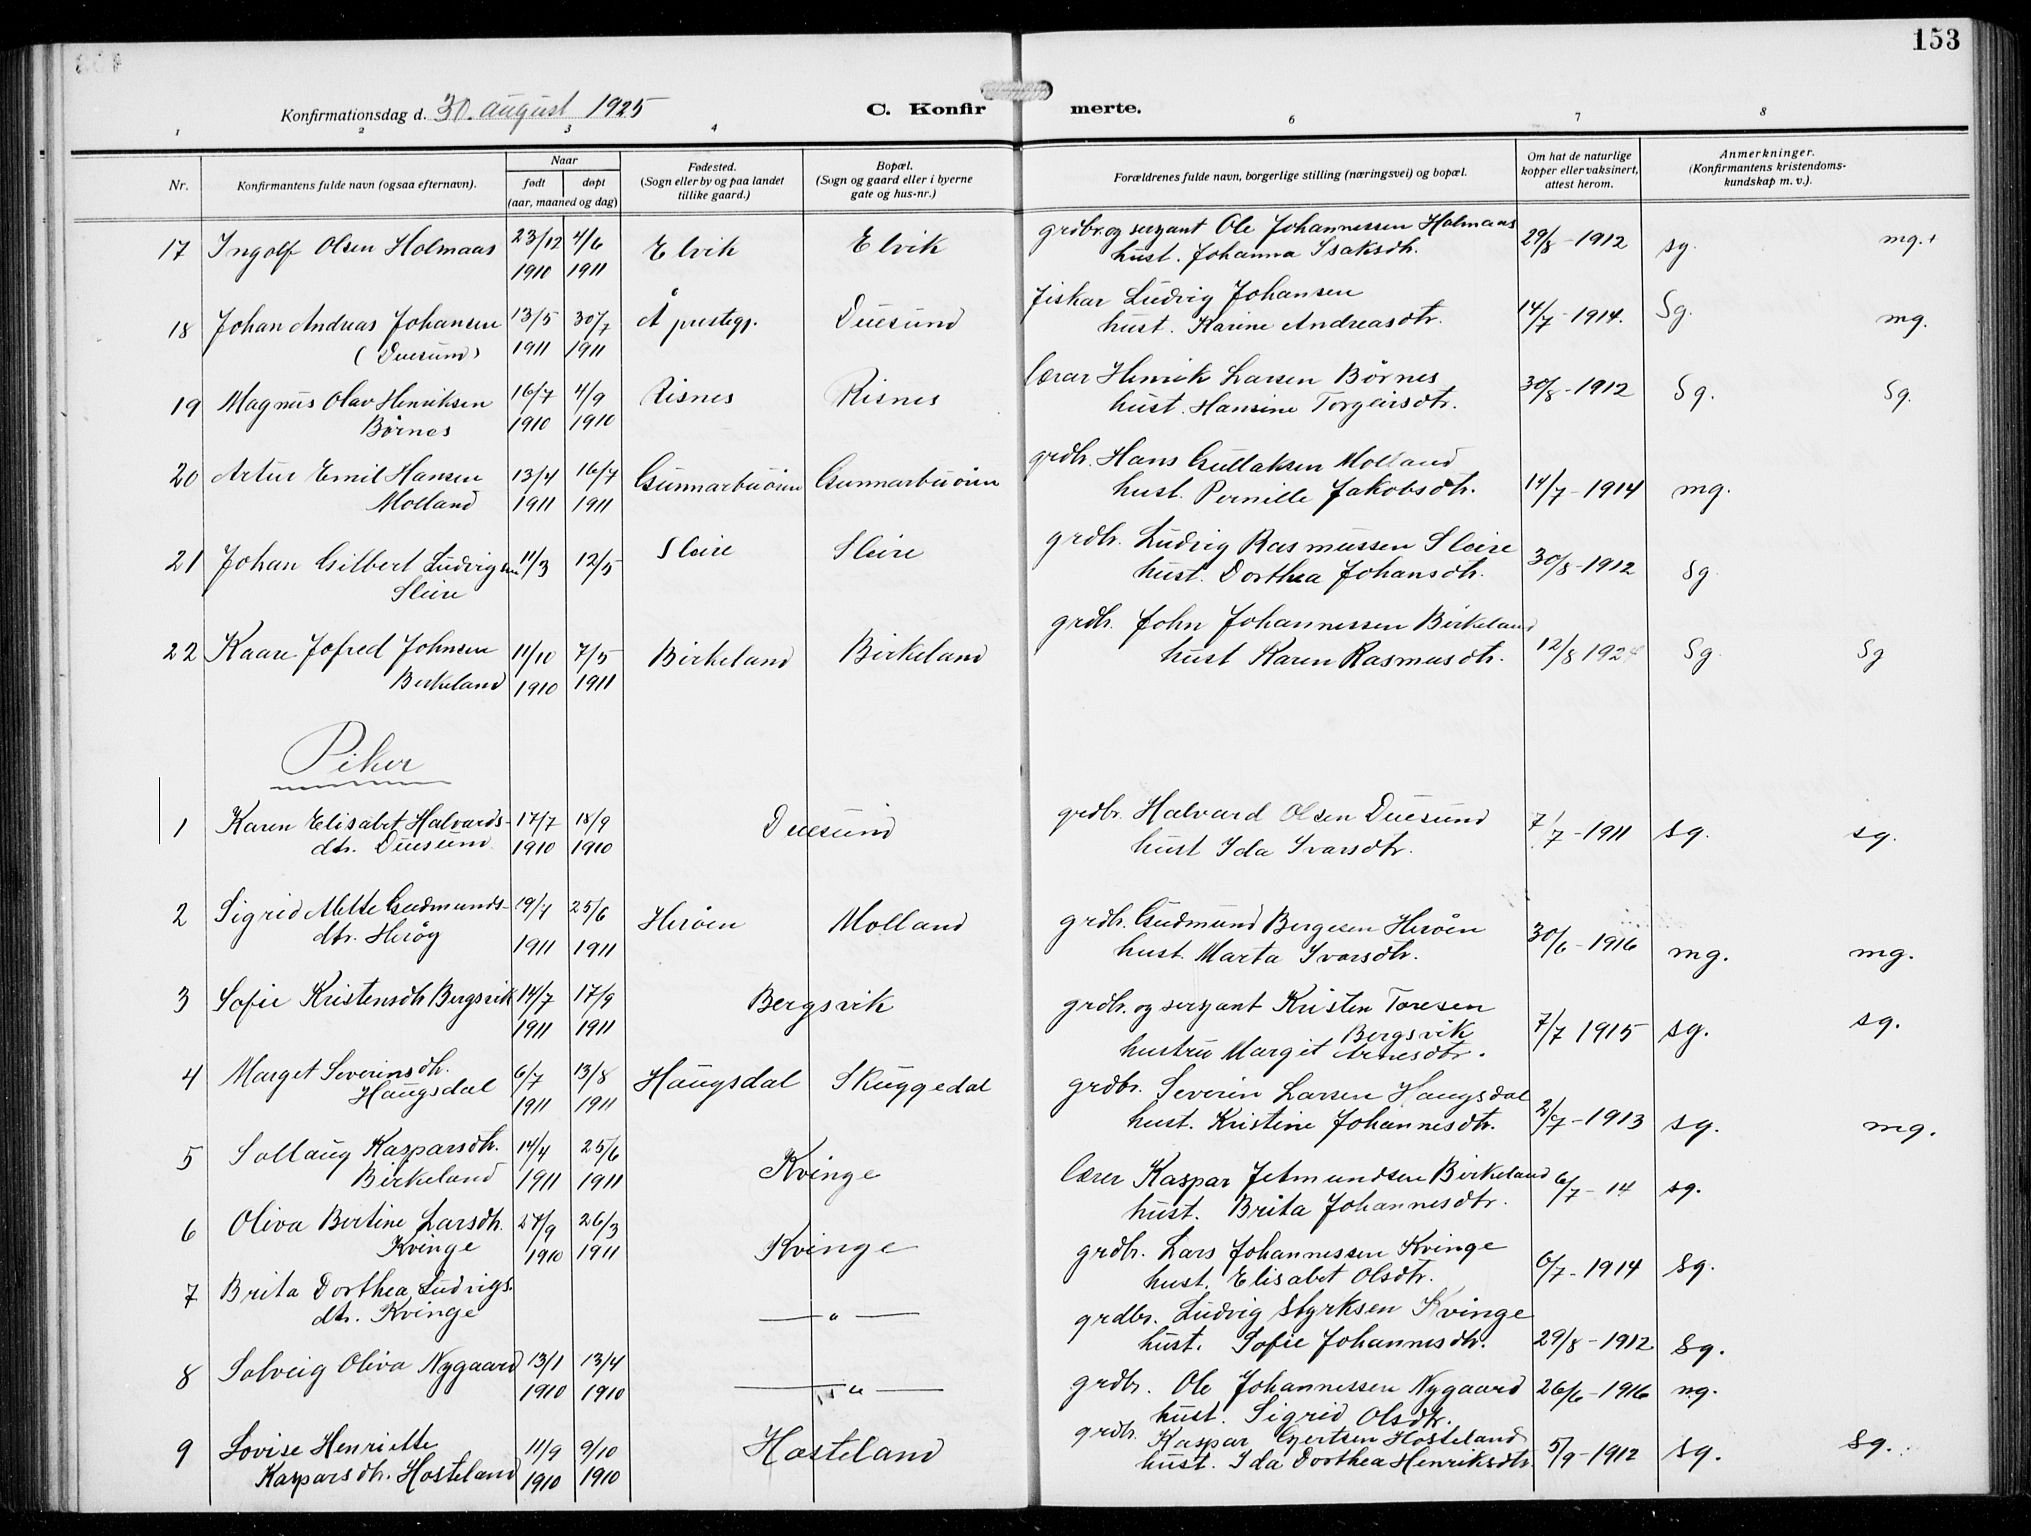 153
Konfirmationsdag d. 30. august 1925
C. Konfirmerte.
1 2 3 4 6 7 8
Nr.
Konfirmantens fulde navn (ogsaa efternavn).
Naar
født døpt
(aar, maaned og dag)
Fødested.
(Sogn eller by og paa landet
tillike gaard.)
Bopæl.
(Sogn og gaard eller i byerne
gate og hus-nr.)
Forældrenes fulde navn, borgerlige stilling (næringsvei) og bopæl.
Om hat de naturlige
kopper eller vaksinert,
attest herom.
Anmerkninger.
(Konfirmantens kristendoms-
kundskap m. v.).
17 Ingolf Olsen Holmaas 23/12 4/6 Elvik Elvik grdbr. og serzant Ole Johannessen Holmaas 29/8-1912 sg. mg.+
1910 1911 hust. Johanna Isaksdtr.
18 Johan Andreas Johansen 13/5 30/7 Å prestegj. Duesund fiskar Ludvig Johansen 14/7-1914. Sg. mg.
(Duesund) 1911 1911 hust. Karine Andreasdtr.
19 Magnus Olav Henriksen 16/7 4/9 Risnes Risnes lærar Henrik Larsen Børnes 30/8-1912 Sg. Sg.
Børnes 1910 1910 hust. Hansine Torgeirsdtr.
20 Artur Emil Hansen 13/4 16/7 Gunnarbuöien Gunnarbuöien grdbr. Hans Gullaksen Molland 14/7-1914 mg.
Molland 1911 1911 hust. Pernille Jakobsdtr.
21 Johan Gilbert Ludvigsen 11/3 12/5 Sleire Sleire grdbr. Ludvig Rasmussen Sleire 30/8-1912 Sg.
Sleire hust. Dorthea Johansdtr.
22 Kaare Jofred Johnsen 11/10 7/5 Birkeland Birkeland grdbr. John Johannessen Birkeland 12/8 1924 Sg. Sg
Birkeland 1910 1911 hust Karen Rasmusdtr.
Piker
1 Karen Elisabet Halvards- 17/7 18/9 Duesund grdbr. Halvard Olsen Duesund 7/7-1911 sg. sg.
dtr. Duesund 1910 1910 hust Ida Ivarsdtr.
2 Sigrid Mette Gudmunds- 19/4 25/6 Heröen Molland grdbr. Gudmund Bergesen Heröen 30/6-1916 mg. mg.
dtr. Herøy 1911 1911 hust. Marta Ivarsdtr.
3 Sofie Kristensdtr Bergsvik 14/7 17/9 Bergsvik grdbr. og serzant Kristen Toresen 7/7 1915 sg. sg.
1911 1911 Bergsvik
hustru Margit Arnesdtr.
4 Marget Severinsdtr. 6/7 13/8 Haugsdal Skuggedal grdbr. Severin Larsen Haugsdal 2/7-1913 sg. mg.
Haugsdal 1911 1911 hust. Kristine Johannesdtr.
5 Sollaug Kasparsdtr. 14/4 25/6 Kvinge lærer Kaspar Jetmundsen Birkeland 6/7-14 sg.
Birkeland 1911 1911 hust. Brita Johannesdtr.
6 Oliva Bertine Larsdtr. 27/9 26/3 Kvinge grdbr. Lars Johannessen Kvinge 6/7-1914 Sg.
Kvinge 1910 1911 hust. Elisabet Olsdtr.
7 Brita Dorthea Ludvigs- — " — grdbr. Ludvig Styrksen Kvinge
dtr. Kvinge hust. Sofie Johannesdtr. 29/8-1912 Sg.
8 Solveig Oliva Nygaard 13/1 13/4 — " — grdbr. Ole Johannessen Nygaard 26/6-1916 ng.
1910 1910 hust. Sigrid Olsdtr.
9 Lovise Henriette 11/9 9/10 Hosteland grdbr. Kaspar Gjertsen Hosteland 5/9-1912 Sg. Sg.
Kasparsdtr. Hosteland 1910 1910 hust. Ida Dorthea Henriksdtr.